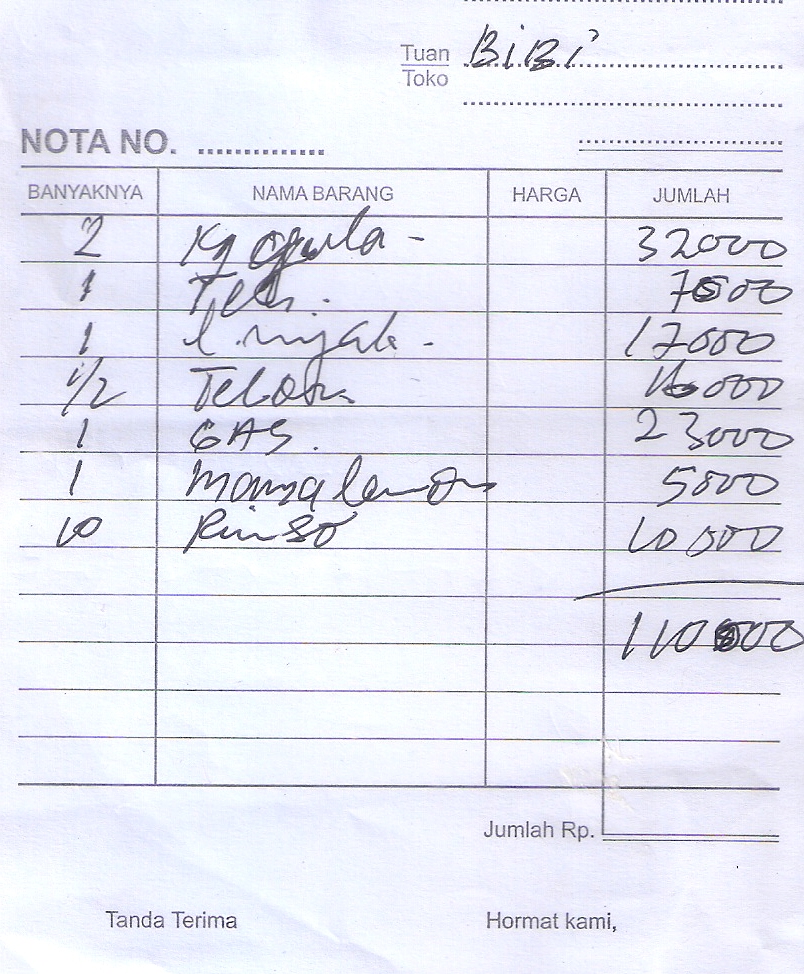 Tuan BiBi
Toko
NOTA NO. ...............
BANYAKNYA NAMA BARANG HARGA JUMLAH
2 Kg gula - 32000
1 Teh. 7000
1 l. minyak - 17000
1/2 Telor 16000
1 GAS. 23000
1 mama lemon 5000
10 Rinso 10 000
110000
Jumlah Rp.
Tanda Terima Hormat kami,